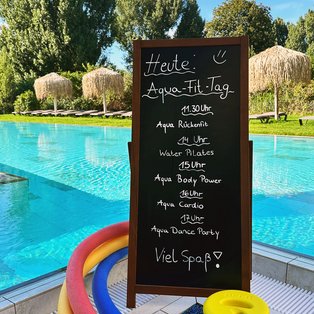 Heute:
Aqua-Fit-Tag
11.30 Uhr
Aqua Rückenfit
14 Uhr
Water Pilates
15 Uhr
Aqua Body Power
16 Uhr
Aqua Cardio
17 Uhr
Aqua Dance Party
Viel Spaß!